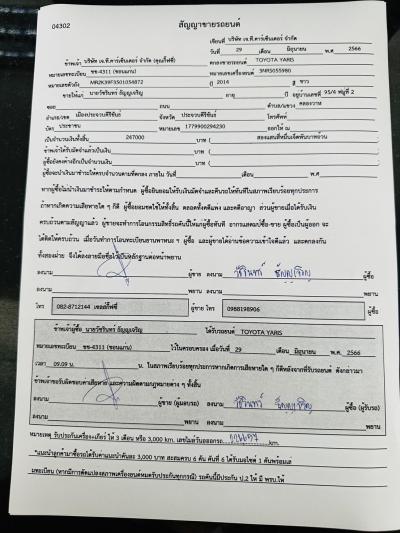 04302
สัญญาขายรถยนต์
เขียนที่ บริษัท เจ.ที.คาร์เซ็นเตอร์ จำกัด
วันที่ 29 เดือน มิถุนายน พ.ศ 2566
ข้าพเจ้า บริษัท เจ.ที.คาร์เซ็นเตอร์ จำกัด (คุณกี้ฟซี่) ตกลงขายรถยนต์ TOYOTA YARIS
หมายเลขทะเบียน ขข-4311 (ขอนแก่น) หมายเลขเครื่องยนต์ 3NR5055980
หมายเลขตัวถัง MR2K39F3501034872 ปี 2014 สี ขาว
ขายให้แก่ นายวัชรินทร์ ธัญญเจริญ อายุ ปี อยู่บ้านเลขที่ 95/4 หมู่ที่ 2
ซอย ถนน ตำบล/แขวง คลองวาฬ
อำเภอ/เขต เมืองประจวบคีรีขันธ์ จังหวัด ประจวบคีรีขันธ์ โทรศัพท์
บัตร ประชาชน หมายเลข 1779900294230 ออกให้ ณ
เป็นจำนวนเงินทั้งสิ้น 247000 บาท ( สองแสนสี่หมื่นเจ็ดพันบาทถ้วน
ข้าพเจ้าได้รับมัดจำแล้วเป็นเงิน บาท (
ผู้ซื้อยังคงค้างอีกเป็นจำนวนเงิน บาท (
ผู้ซื้อจะนำเงินมาชำระให้ครบจำนวนตามที่ตกลง ภายใน วันที่ เดือน พ.ศ
หากผู้ซื้อไม่นำเงินมาชำระให้ตามกำหนด ผู้ซื้อยินยอมให้ริบเงินมัดจำและคืนรถให้ทันทีในสภาพเรียบร้อยทุกประการ
ถ้าหากเกิดความเสียหายใด ๆ ก็ดี ผู้ซื้อยอมชดใช้ให้ทั้งสิ้น ตลอดทั้งคดีแพ่ง และคดีอาญา ส่วนผู้ขายเมื่อได้รับเงิน
ครบถ้วนตามสัญญาแล้ว ผู้ขายจะทำการโอนกรรมสิทธิ์รถคันนี้ให้แก่ผู้ซื้อทันที อากรแสตมป์ซื้อ-ขาย ผู้ซื้อเป็นผู้ออก จะ
ได้คิดให้ครบถ้วน เมื่อวันทำการโอนทะเบียนยานพาหนะ ฯ ผู้ซื้อ และผู้ขายได้อ่านข้อความเข้าใจดีแล้ว และตกลงกัน
ทั้งสองฝ่าย จึงได้ลงลายมือชื่อไว้เป็นหลักฐานต่อหน้าพยาน
ลงนาม ผู้ขาย ลงนาม วัชรินทร์ ธัญญเจริญ ผู้ซื้อ
ลงนาม พยาน ลงนาม พยาน
โทร 082-8712144 เซลล์กี้ฟซี่ ผู้ขาย โทร 0988198906 ผู้ซื้อ
ข้าพเจ้าผู้ซื้อ นายวัชรินทร์ ธัญญเจริญ ได้รับรถยนต์ TOYOTA YARIS
หมายเลขทะเบียน ขข-4311 (ขอนแก่น) ไว้ในครอบครอง เมื่อวันที่ 29 เดือน มิถุนายน พ.ศ. 2566
เวลา 09.09 น. ในสภาพเรียบร้อยทุกประการหากเกิดการเสียหายใด ๆ ก็ดีหลังจากที่รับรถยนต์ ดังกล่าวมา
ข้าพเจ้าขอรับผิดชอบค่าเสียหาย และความผิดตามกฎหมายต่าง ๆ ทั้งสิ้น
ลงนาม ผู้ขาย (ผู้มอบรถ) ลงนาม วัชรินทร์ ธัญญเจริญ ผู้ซื้อ (ผู้รับรถ)
ลงนาม พยาน ลงนาม พยาน
หมายเหตุ รับประกันเครื่อง+เกียร์ ให้ 3 เดือน หรือ 3,000 km. เลขไมล์วันออกรถ km.
*แนะนำลูกค้ามาซื้อรถได้รับค่าแนะนำคันละ 3,000 บาท สะสมครบ 6 คัน คันที่ 6 ได้รับมอไซค์ 1 คันพร้อมเล่
มทะเบียน (หากมีการดัดแปลงสภาพเครื่องยนต์หมดรับประกันทุกกรณี) รถคันนี้มีประกัน ป.2 ให้ มี พรบ.ให้